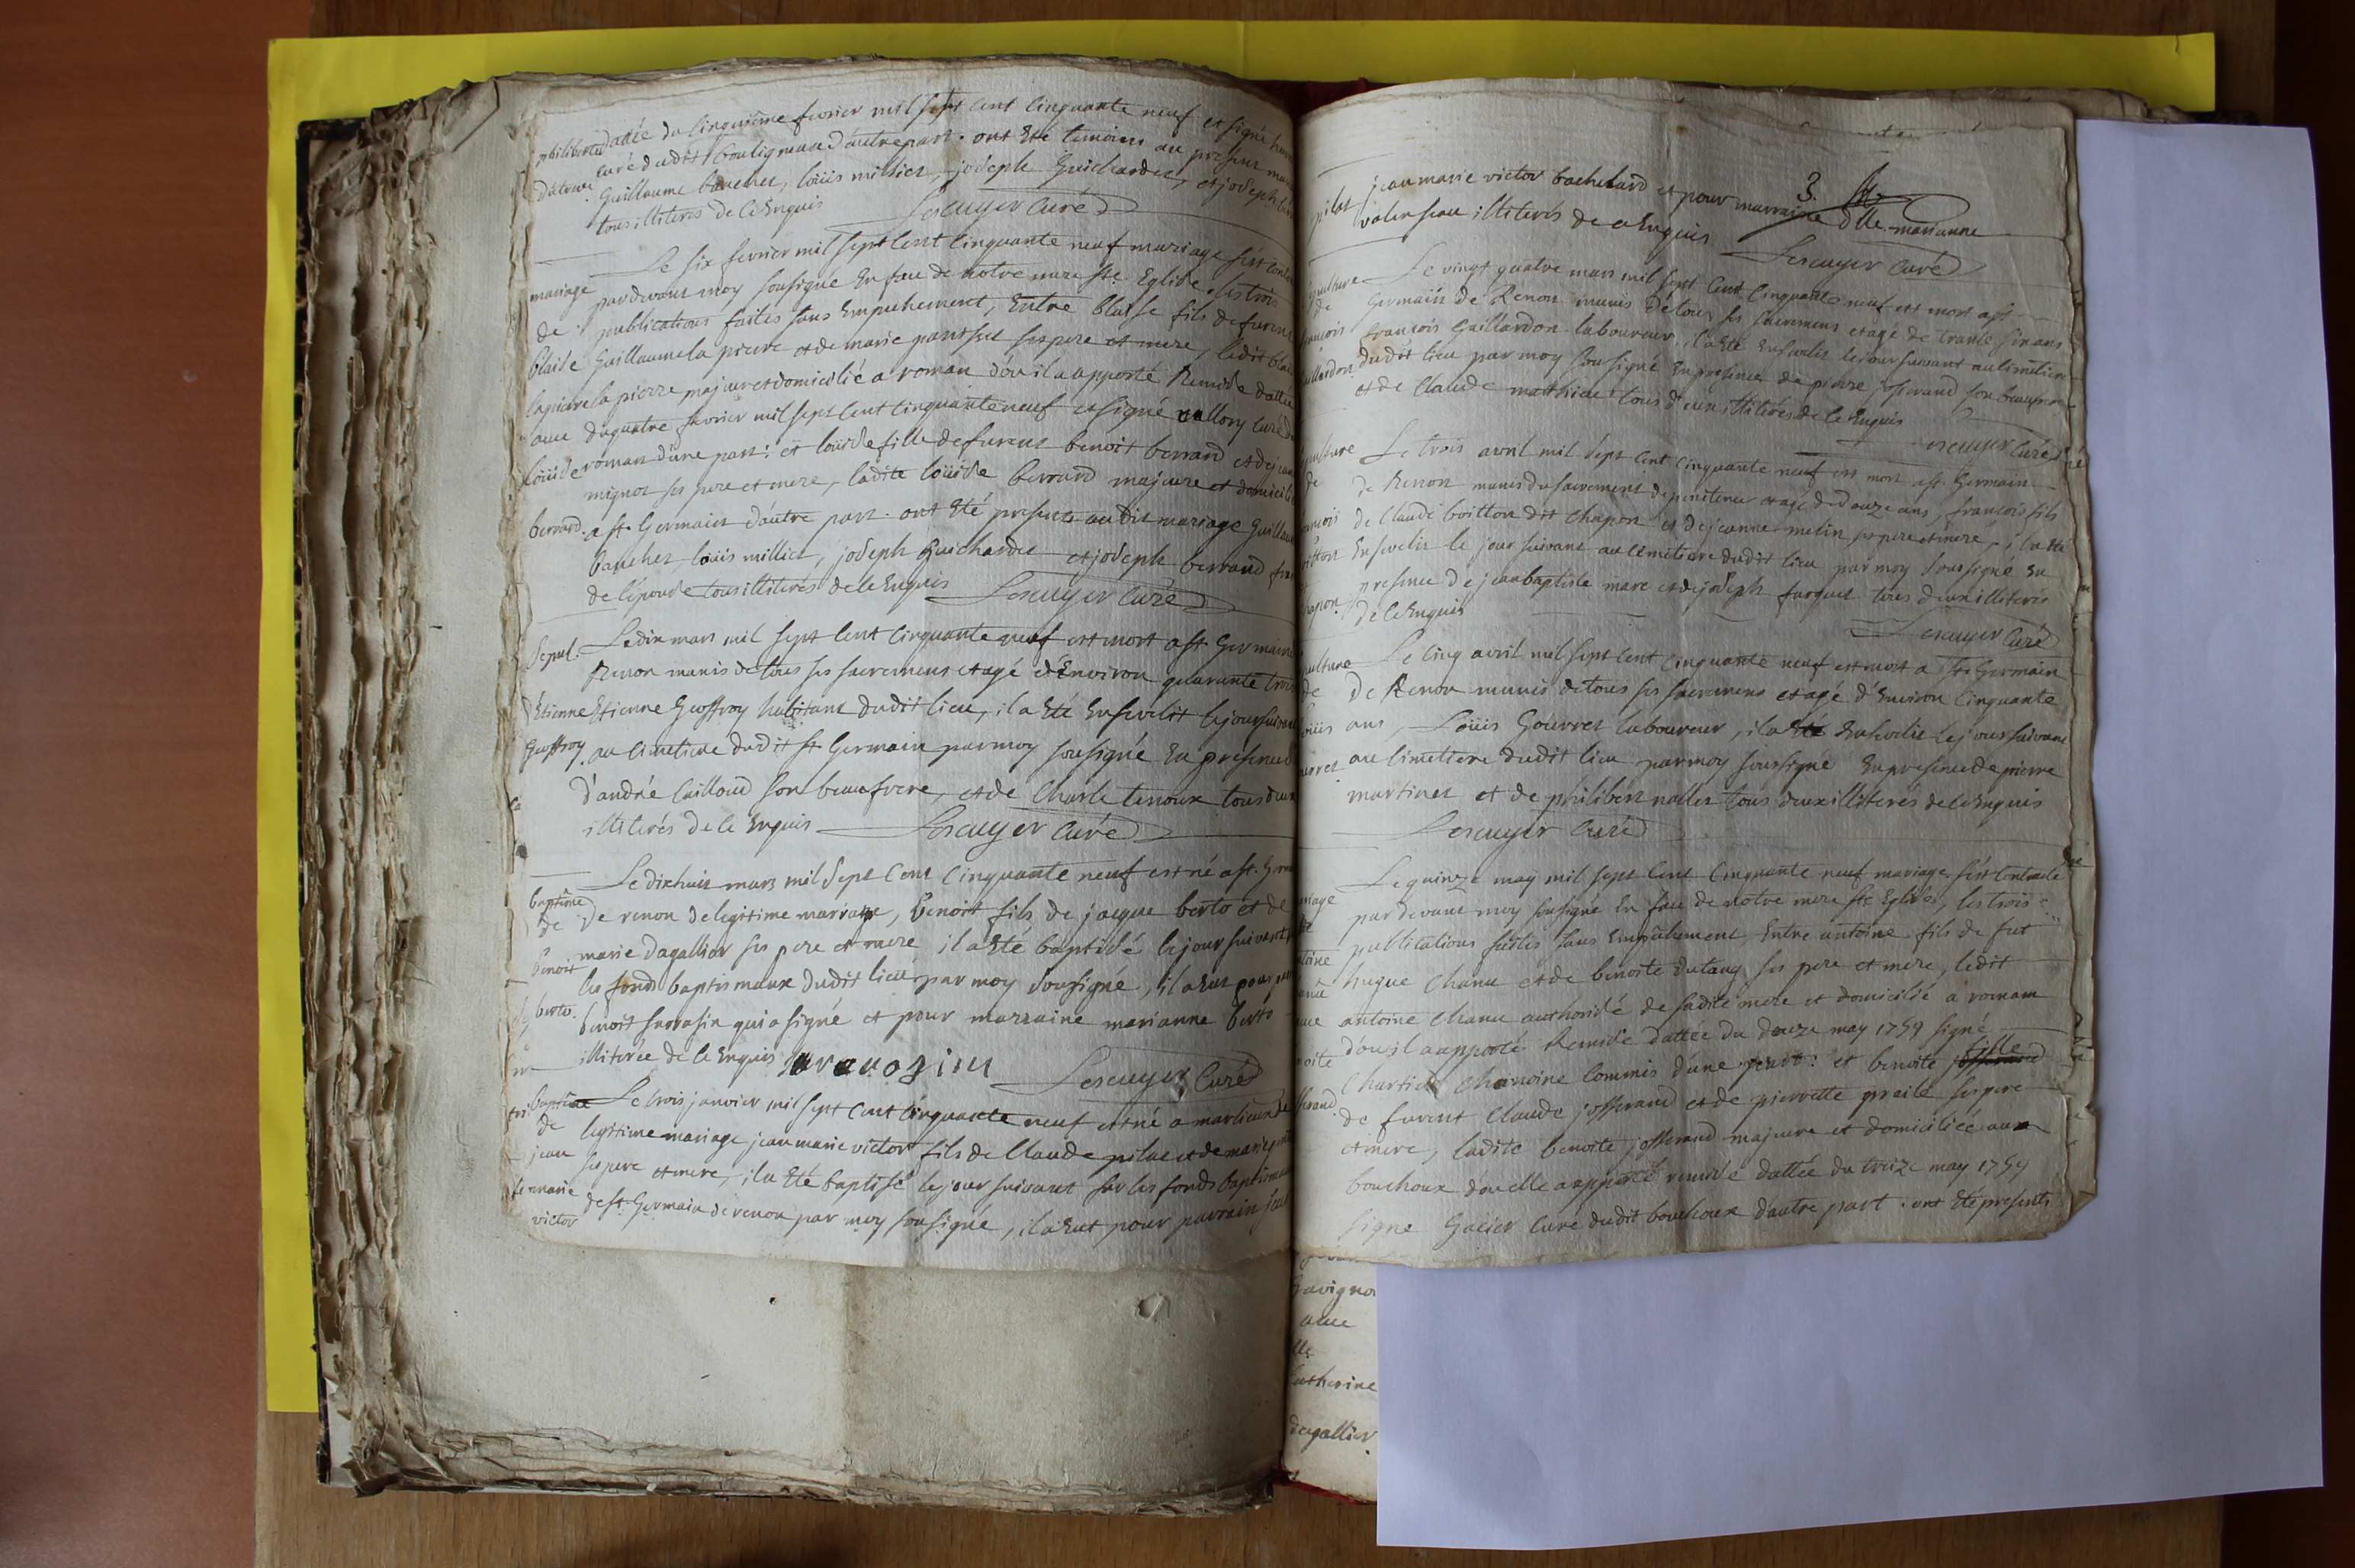 philiberte dattée du cinquième fevrier mil sept cent cinquante neuf et signé
dutour curé dudit bouligneux d'autre part. ont été temoins au présent
Guillaume baucher, loüis millier, joseph Guichardet, et joseph
tous illiterés de ce Enquis Lescuyer Curé
mariage
de
blaise
lapierre
avec
loüise
berrard.
Le six fevrier mil sept cent cinquante neuf mariage s'est
pardevant moy sousigné En face de notre mere ste Eglise, les trois
publications faites sans Empechement, Entre blaise fils de furent
Guillaume la pierre et de marie ses pere et mere, ledit
la pierre majeur et domicilié a roman d'ou il a apporté Remise dattée
du quatre fevrier mil sept cent cinquante neuf et signé vallory curé
roman d'une part: et loüise fille de furent benoit berrard et de
mignot ses pere et mere, ladite loüise berrard majeure et
a st. Germain d'autre part. ont été presents audit mariage
baucher loüis millier, joseph Guichardet et joseph berrard
de l'épouse tous illiterés de ce Enquis Lescuyer Curé
Sepul.
d'Etienne
Geoffroy.
Le dix mars mil sept cent cinquante neuf est mort a st. Germain
Renon munis de tous ses sacremens et agé d'Environ quarante trois
Etienne Geoffroy habitant dudit lieu, il a été Ensevelit le jour suivant
au cimetiere dudit st. Germain par moy sousigné En presence
d'andré Caillaud son beaufrere, et de Charle tenoux tous deux
illiterés de ce Enquis Lescuyer Curé
baptême
de
benoit
berto.
Le dixhuit mars mil sept cent cinquante neuf est né a st.
de renon de legitime mariage, benoit fils de jacque berto et de
marie dagallier ses pere et mere il a été baptisé le jour suivant
les fonds baptismaux dudit lieu par moy sousigné, il a eut pour
benoit sarrasin qui a signé et pour marraine marianne berto
illiterée de ce Enquis Lescuyer Curé
baptême
de
jean
marie
victor
Le trois janvier mil sept cent cinquante neuf est né a marlieux de
legitime mariage jean marie victor fils de Claude pilat et de marie
ses pere et mere, il a été baptisé le jour suivant sur les fonds
de st. Germain de renon par moy sousigné, il a eut pour parrain
3.
pilat jean marie victor bachelard et pour marraine dlle. marianne
illiterés de ce Enquis Lescuyer Curé
Le vingt quatre mars mil sept cent cinquante neuf est mort a st.
Germain de Renon munis de tous ses sacremens et agé de trante six ans
françois Gaillardon laboureur, il a été Ensevelit le jour suivant au cimetiere
dudit lieu par moy sousigné En presence de pierre josserand son beaufrere
et de Claude matthieu tous deux illiterés de ce Enquis
Lescuyer Curé
Le trois avril mil sept cent cinquante neuf est mort a st. Germain
de Renon munis du sacrement de penitence et agé de douze ans, françois fils
de Claude boitton dit Chapon et de jeanne melin ses pere et mere, il a été
Ensevelit le jour suivant au cimetiere dudit lieu par moy soussigné En
presence de jean baptiste marc et de joseph farguet tous deux illiterés
de ce Enquis
Lescuyer Curé
Le cinq avril mil sept cent cinquante neuf est mort a St. Germain
de Renon munis de tous ses sacremens et agé d'Environ Cinquante
ans, Loüis Gourret laboureur, il a été Ensevelit le jour suivant
au cimetiere dudit lieu par moy soussigné En presence de pierre
martinet et de philibert nallet tous deux illiterés de ce Enquis
Lescuyer Curé
Le quinze may mil sept cent cinquante neuf mariage s'est contracté
pardevant moy sousigné En face de notre mere ste Eglise, les trois
publications faites sans Empechement, Entre antoine fils de fut
hugue Chanu et de benoite dutang ses pere et mere, ledit
antoine Chanu authorisé de sadite mere et domicilié a romam
d'ou il a apporté Remise dattée du douze may 1759 signé
Chanoine Commis d'une part: et benoite fille
de furent Claude josserand et de pierrette praite ses pere
et mere, ladite benoite josserand majeure et domiciliée aux
bouchoux d'ou elle a apporté remise dattée du treize may 1759
signe Galier Curé dudit bouchoux d'autre part. ont été presents
avec
Catherine
dagallier